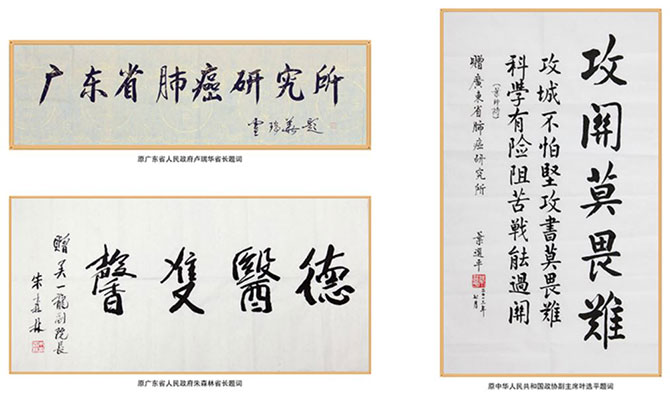 广东省肺癌研究所
卢瑞华题
原广东省人民政府卢瑞华省长题词
德醫雙馨
赠吴一龍副院长
朱森林
原广东省人民政府朱森林省长题词
攻關莫畏難
攻城不怕堅攻書莫畏難
科學有险阻苦戦能過關
贈廣東省肺癌研究所
葉選平
原中华人民共和国政协副主席叶选平题词